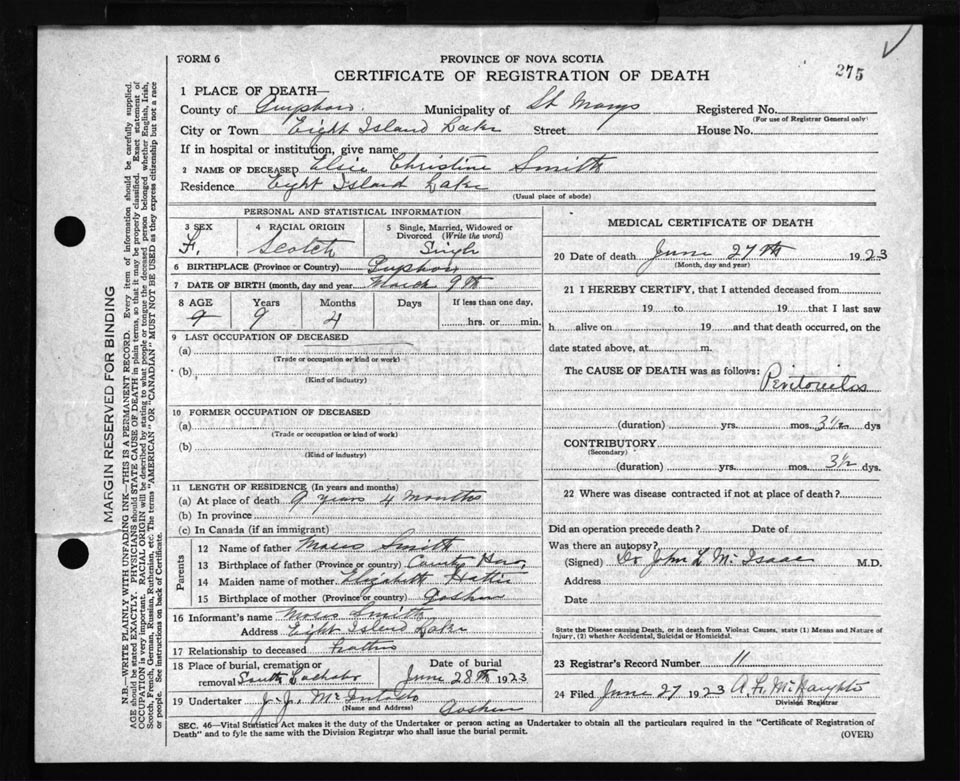 FORM 6
PROVINCE OF NOVA SCOTIA
275
CERTIFICATE OF REGISTRATION OF DEATH
1 PLACE OF DEATH—
County of Guysboro. Municipality of St Marys Registered No.
(For use of Registrar General only)
City or Town Eight Island Lake Street House No.
If in hospital or institution, give name
2 NAME OF DECEASED Elsie Christine Smith
Residence Eight Island Lake
(Usual place of abode)
PERSONAL AND STATISTICAL INFORMATION
3 SEX 4 RACIAL ORIGIN 5 Single, Married, Widowed or Divorced (Write the word)
F. Scotch Single
6 BIRTHPLACE (Province or Country) Guysboro
7 DATE OF BIRTH (month, day and year) March 9th
8 AGE Years Months Days If less than one day,
9 9 4 hrs. or min.
9 LAST OCCUPATION OF DECEASED
(a)
(Trade or occupation or kind or work)
(b)
(Kind of industry)
10 FORMER OCCUPATION OF DECEASED
(a)
(Trade or occupation or kind of work)
(b)
(Kind of industry)
11 LENGTH OF RESIDENCE (In years and months)
(a) At place of death 9 years 4 months
(b) In province
(c) In Canada (if an immigrant)
Parents
12 Name of father Moses Smith
13 Birthplace of father (Province or country) County
14 Maiden name of mother Elizabeth Hattie
15 Birthplace of mother (Province or country) Goshen
16 Informant's name Moses Smith
Address Eight Island Lake
17 Relationship to deceased Father
18 Place of burial, cremation or removal South Lochaber Date of burial June 28th 1923
19 Undertaker J. J. Goshen
(Name and Address)
MEDICAL CERTIFICATE OF DEATH
20 Date of death June 27th 1923
(Month, day and year)
21 I HEREBY CERTIFY, that I attended deceased from
19 to 19 that I last saw
h alive on 19 and that death occurred, on the
date stated above, at m.
The CAUSE OF DEATH was as follows: Peritonitis
(duration) yrs. mos. 3½ dys
CONTRIBUTORY
(Secondary)
(duration) yrs. mos. 3½ dys.
22 Where was disease contracted if not at place of death?
Did an operation precede death? Date of
Was there an autopsy?
(Signed) Dr John L McIsaac M.D.
Address
Date
State the Disease causing Death, or in death from Violent Causes, state (1) Means and Nature of
Injury, (2) whether Accidental, Suicidal or Homicidal.
23 Registrar's Record Number 11
24 Filed June 27 1923 McNaughton
Division Registrar
SEC. 46—Vital Statistics Act makes it the duty of the Undertaker or person acting as Undertaker to obtain all the particulars required in the "Certificate of Registration of
Death" and to fyle the same with the Division Registrar who shall issue the burial permit.
(OVER)
MARGIN RESERVED FOR BINDING
N.B.—WRITE PLAINLY WITH UNFADING INK—THIS IS A PERMANENT RECORD. Every item of information should be carefully supplied.
AGE should be stated EXACTLY. PHYSICIANS should STATE CAUSE OF DEATH in plain terms, so that it may be properly classified. Exact statement of
OCCUPATION is very important. RACIAL ORIGIN will be described by stating to what people or tongue the deceased person belonged, whether English, Irish,
Scotch, French, German, Russian, Ruthenian, etc. The terms "AMERICAN" OR "CANADIAN" MUST NOT BE USED as they express citizenship but not a race
or people. See instructions on back of Certificate.